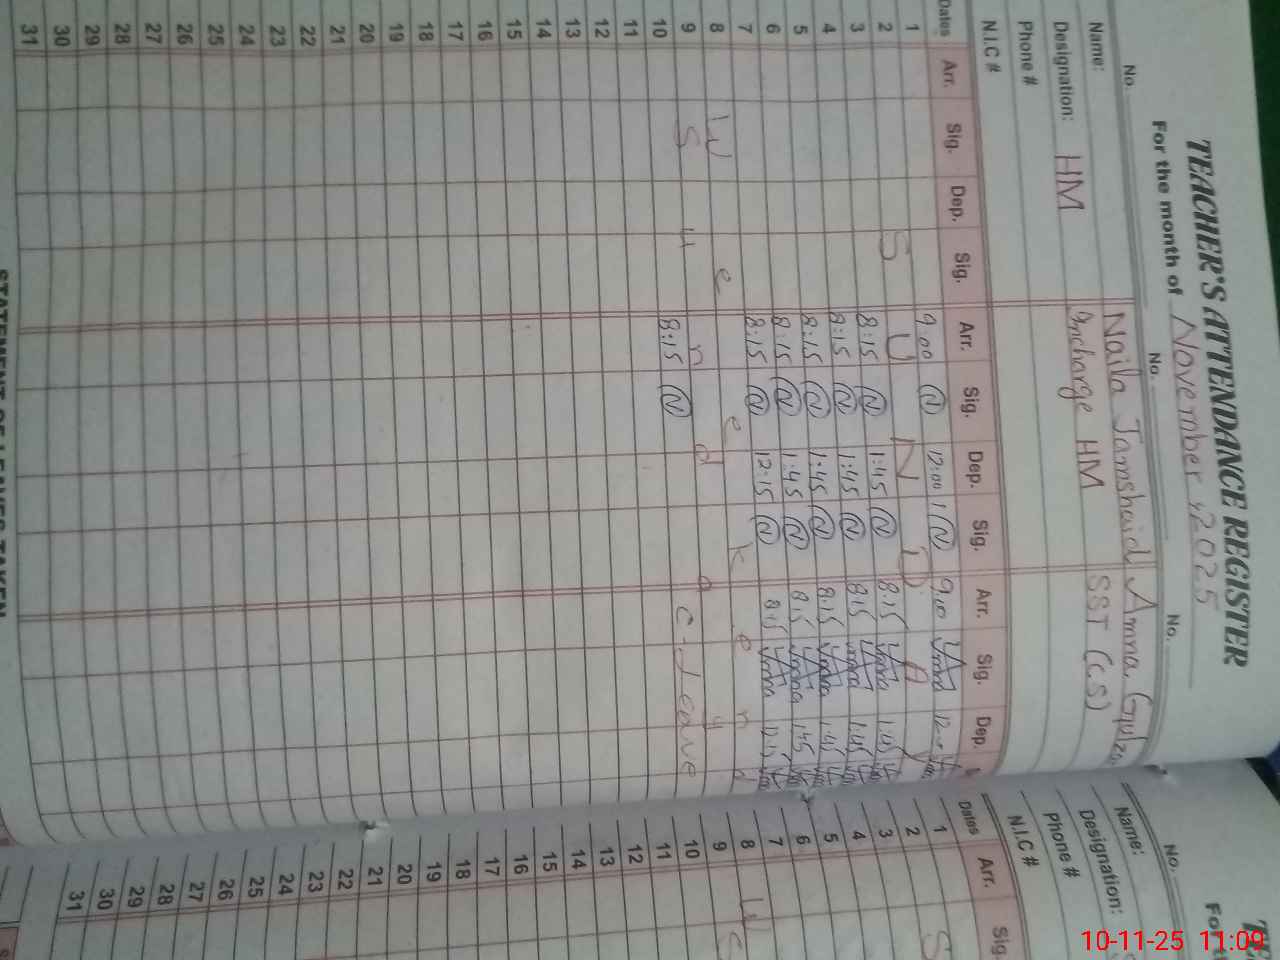 TEACHER'S ATTENDANCE REGISTER
For the month of November, 2025
No. No. No.
Name: Naila Jamshaid Amna Gulza
Designation: HM Incharge HM SST (CS)
Phone #
N.I.C #
Dates Arr. Sig. Dep. Sig. Arr. Sig. Dep. Sig. Arr. Sig. Dep.
1 9:00 N 12:00 N 9:00 Amna 12:00
2 S U N D A Y
3 8:15 N 1:45 N 8:15 Amna 1:45
4 8:15 N 1:45 N 8:15 Amna 1:45
5 8:15 N 1:45 N 8:15 Amna 1:45
6 8:15 N 1:45 N 8:15 Amna 1:45
7 8:15 N 12:15 N 8:15 Amna 12:15
8 W e e k e n d
9 S u n d a y
10 8:15 N C-Leave
11
12
13
14
15
16
17
18
19
20
21
22
23
24
25
26
27
28
29
30
31
STATEMENT OF LEAVES TAKEN
No.
Name:
Designation:
Phone #
N.I.C #
Dates Arr. Sig.
1
2 S
3
4
5
6
7
8 W
9 S
10
11
12
13
14
15
16
17
18
19
20
21
22
23
24
25
26
27
28
29
30
31
10-11-25 11:09